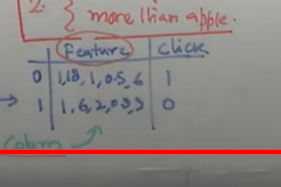 2. } more than apple.
Feature Click
0 1,18,1,0.5,6 1
→ 1 1,6,2,0.3,3 0
Column